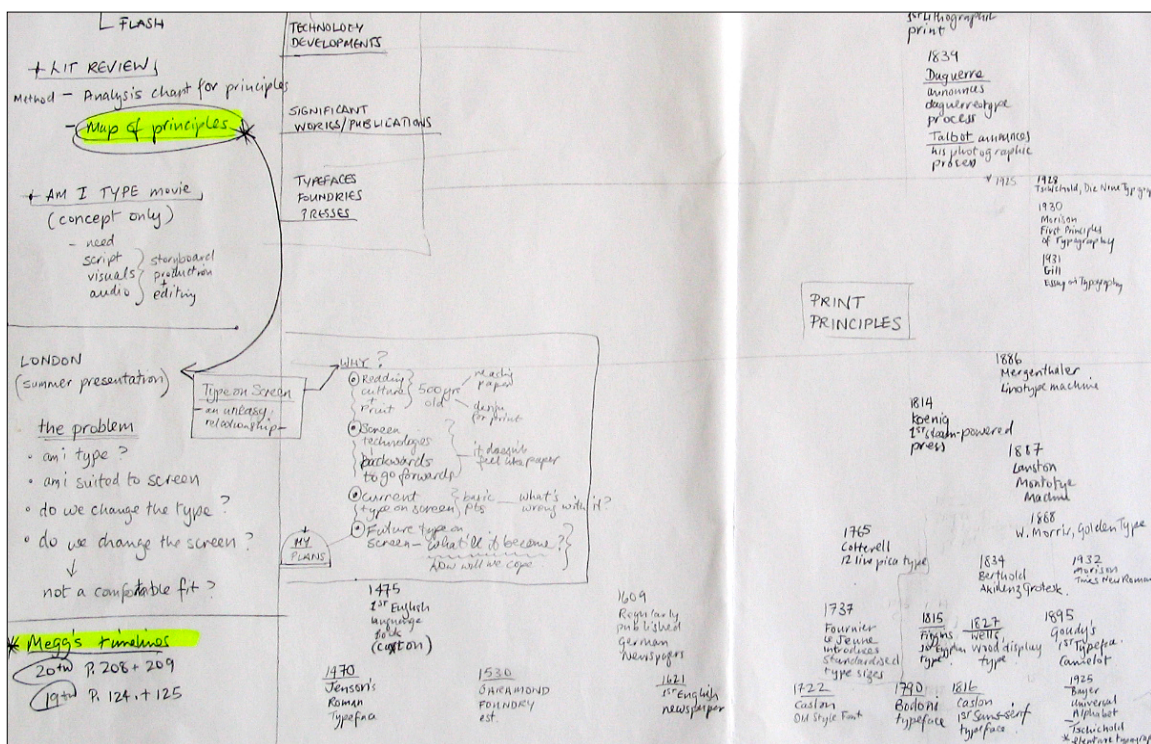 FLASH
LIT REVIEW
Method - Analysis chart for principles
- Map of principles
AM I TYPE movie
(concept only)
- need
script
visuals
audio
storyboard
production
+
editing
LONDON
(summer presentation)
the problem
• am i type?
• am i suited to screen
• do we change the type?
• do we change the screen?
not a comfortable fit?
* Megg's timelines
20th P. 208 + 209
19th P. 124. + 125
TECHNOLOGY
DEVELOPMENTS
SIGNIFICANT
WORKS/PUBLICATIONS
TYPEFACES
FOUNDRIES
PRESSES
Type on Screen
- an uneasy
relationship -
WHY?
Reading
culture
+
Print
500 yrs
old
paper
design
for print
Screen
technologies
backwards
to go forwards
it doesn't
feel like paper
Current
type on screen
basic
pts
what's
wrong with it?
Future type on
screen - what'll it become?
how will we cope
MY
PLANS
1475
1st English
language
book
(Caxton)
1470
Jenson's
Roman
1530
GARAMOND
FOUNDRY
est.
1609
Regularly
published
German
Newspapers
1621
1st English
newspaper
1st Lithographic
print
1839
Daguerre
announces
daguerreotype
process
Talbot announces
his photographic
process
1925
1928
Tschichold, Die Neue
1930
Morison
First Principles
of Typography
1931
Gill
Essay on Typography
PRINT
PRINCIPLES
1886
Mergenthaler
Linotype machine
1814
Koenig
1st steam-powered
press
1887
Lanston
1888
W. Morris, Golden Type
1765
Cotterell
12 line pica type
1834
Berthold
1932
Morison
Times New Roman
1737
Fournier
le Jeune
introduces
standardised
type sizes
1815
Figgins
type
1827
Wells
wood display
type
1895
Goudy's
1st
Camelot
1722
Caslon
Old Style Font
1790
Bodoni
typeface
1816
Caslon
1st Sans-serif
typeface
1925
Bayer
universal
Alphabet
- Tschichold